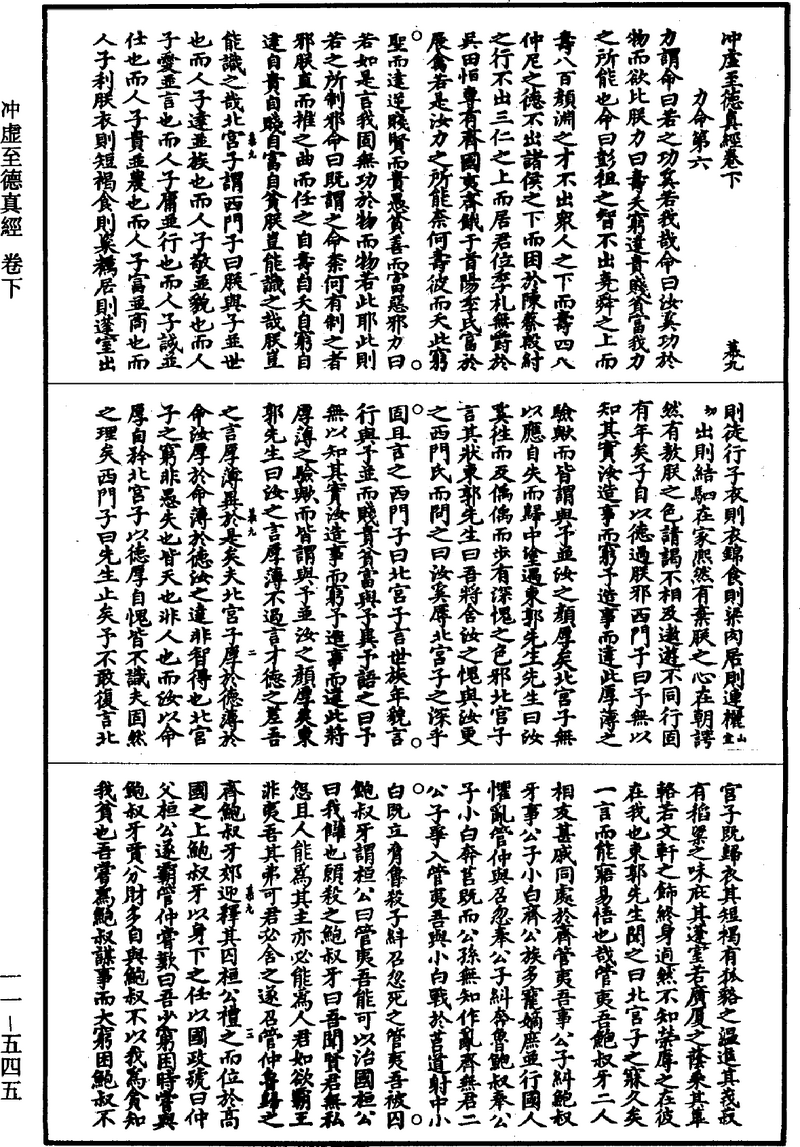 冲虛至德真經 卷下
一一-五四五
冲虛至德真經卷下 慕九
力命第六
力謂命曰若之功奚若我哉命曰汝奚功於
物而欲比朕力曰壽夭窮達貴賤貧富我力
之所能也命曰彭祖之智不出堯舜之上而
壽八百顏淵之才不出衆人之下而壽四八
仲尼之德不出諸侯之下而困於陳蔡殷紂
之行不出三仁之上而居君位季札無爵於
吳田恒專有齊國夷齊餓于首陽季氏富於
展禽若是汝力之所能柰何壽彼而夭此窮
聖而達逆賤賢而貴愚貧善而富惡邪力曰
若如是言我固無功於物而物若此耶此則
若之所制邪命曰既謂之命柰何有制之者
邪朕直而推之曲而任之自壽自夭自窮自
達自貴自賤自富自貧朕豈能識之哉朕豈
慕九 一
能識之哉北宮子謂西門子曰朕與子並世
也而人子達並族也而人子敬並貌也而人
子愛並言也而人子庸並行也而人子誠並
仕也而人子貴並農也而人子富並商也而
人子利朕衣則短褐食則粢糲居則蓬室出
則徒行子衣則衣錦食則粱肉居則連欐
出則結駟在家熙然有棄朕之心在朝諤
然有敖朕之色請謁不相及遨遊不同行固
有年矣子自以德過朕邪西門子曰予無以
知其實汝造事而窮予造事而達此厚薄之
驗歟而皆謂與予並汝之顏厚矣北宮子無
以應自失而歸中塗遇東郭先生先生曰汝
奚往而反偊偊而步有深愧之色邪北宮子
言其狀東郭先生曰吾將舍汝之愧與汝更
之西門氏而問之曰汝奚辱北宮子之深乎
固且言之西門子曰北宮子言世族年貌言
行與予並而賤貴貧富與予異予語之曰予
無以知其實汝造事而窮予造事而達此將
厚薄之驗歟而皆謂與予並汝之顏厚矣東
郭先生曰汝之言厚薄不過言才德之差吾
慕九 二
之言厚薄異於是矣夫北宮子厚於德薄於
命汝厚於命薄於德汝之達非智得也北宮
子之窮非愚失也皆天也非人也而汝以命
厚自矜北宮子以德厚自愧皆不識夫固然
之理矣西門子曰先生止矣予不敢復言北
宮子既歸衣其短褐有狐貉之溫進其茙菽
有稻粱之味庇其蓬室若廣厦之蔭乘其蓽
輅若文軒之飾終身逌然不知榮辱之在彼
在我也東郭先生聞之曰北宮子之寐久矣
一言而能寤易悟也哉管夷吾鮑叔牙二人
相友甚戚同處於齊管夷吾事公子糾鮑叔
牙事公子小白齊公族多寵嫡庶並行國人
懼亂管仲與召忽奉公子糾奔魯鮑叔奉公
子小白奔莒既而公孫無知作亂齊無君二
公子爭入管夷吾與小白戰於莒道射中小
白既立脅魯殺子糾召忽死之管夷吾被囚
鮑叔牙謂桓公曰管夷吾能可以治國桓公
曰我讎也願殺之鮑叔牙曰吾聞賢君無私
怨且人能爲其主亦必能爲人君如欲霸王
非夷吾其弗可君必舍之遂召管仲魯歸之
慕九 三
齊鮑叔牙郊迎釋其囚桓公禮之而位於高
國之上鮑叔牙以身下之任以國政號曰仲
父桓公遂霸管仲嘗歎曰吾少窮困時嘗與
鮑叔牙賈分財多自與鮑叔不以我爲貪知
我貧也吾嘗爲鮑叔謀事而大窮困鮑叔不